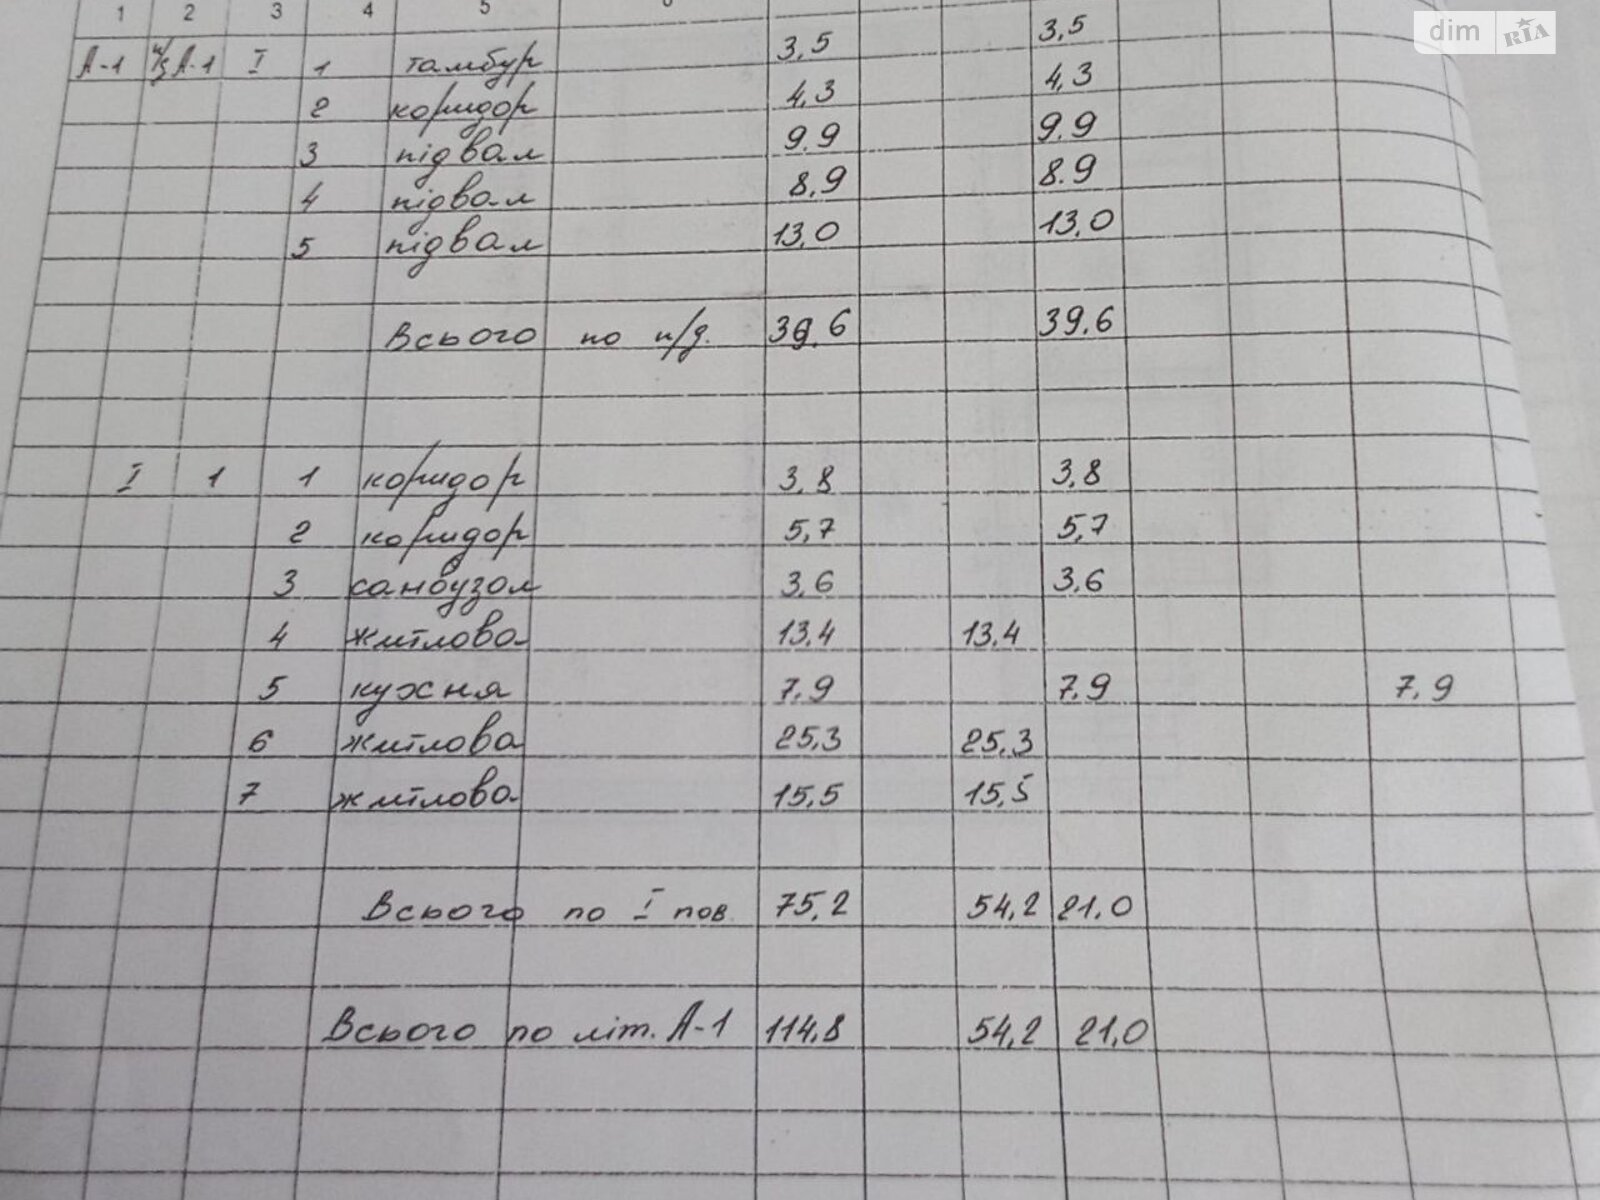 dim RIA
1 2 3 4 5 6
А-1 п/д А-1 I 1 тамбур 3,5 3,5
2 коридор 4,3 4,3
3 підвал 9.9 9.9
4 підвал 8.9 8.9
5 підвал 13,0 13,0
Всього по п/д. 39.6 39.6
I 1 1 коридор 3,8 3,8
2 коридор 5,7 5,7
3 санвузол 3.6 3.6
4 житлова 13.4 13.4
5 кухня 7.9 7.9 7.9
6 житлова 25,3 25,3
7 житлова 15,5 15,5
Всього по I пов. 75,2 54,2 21.0
Всього по літ. А-1 114,8 54,2 21,0